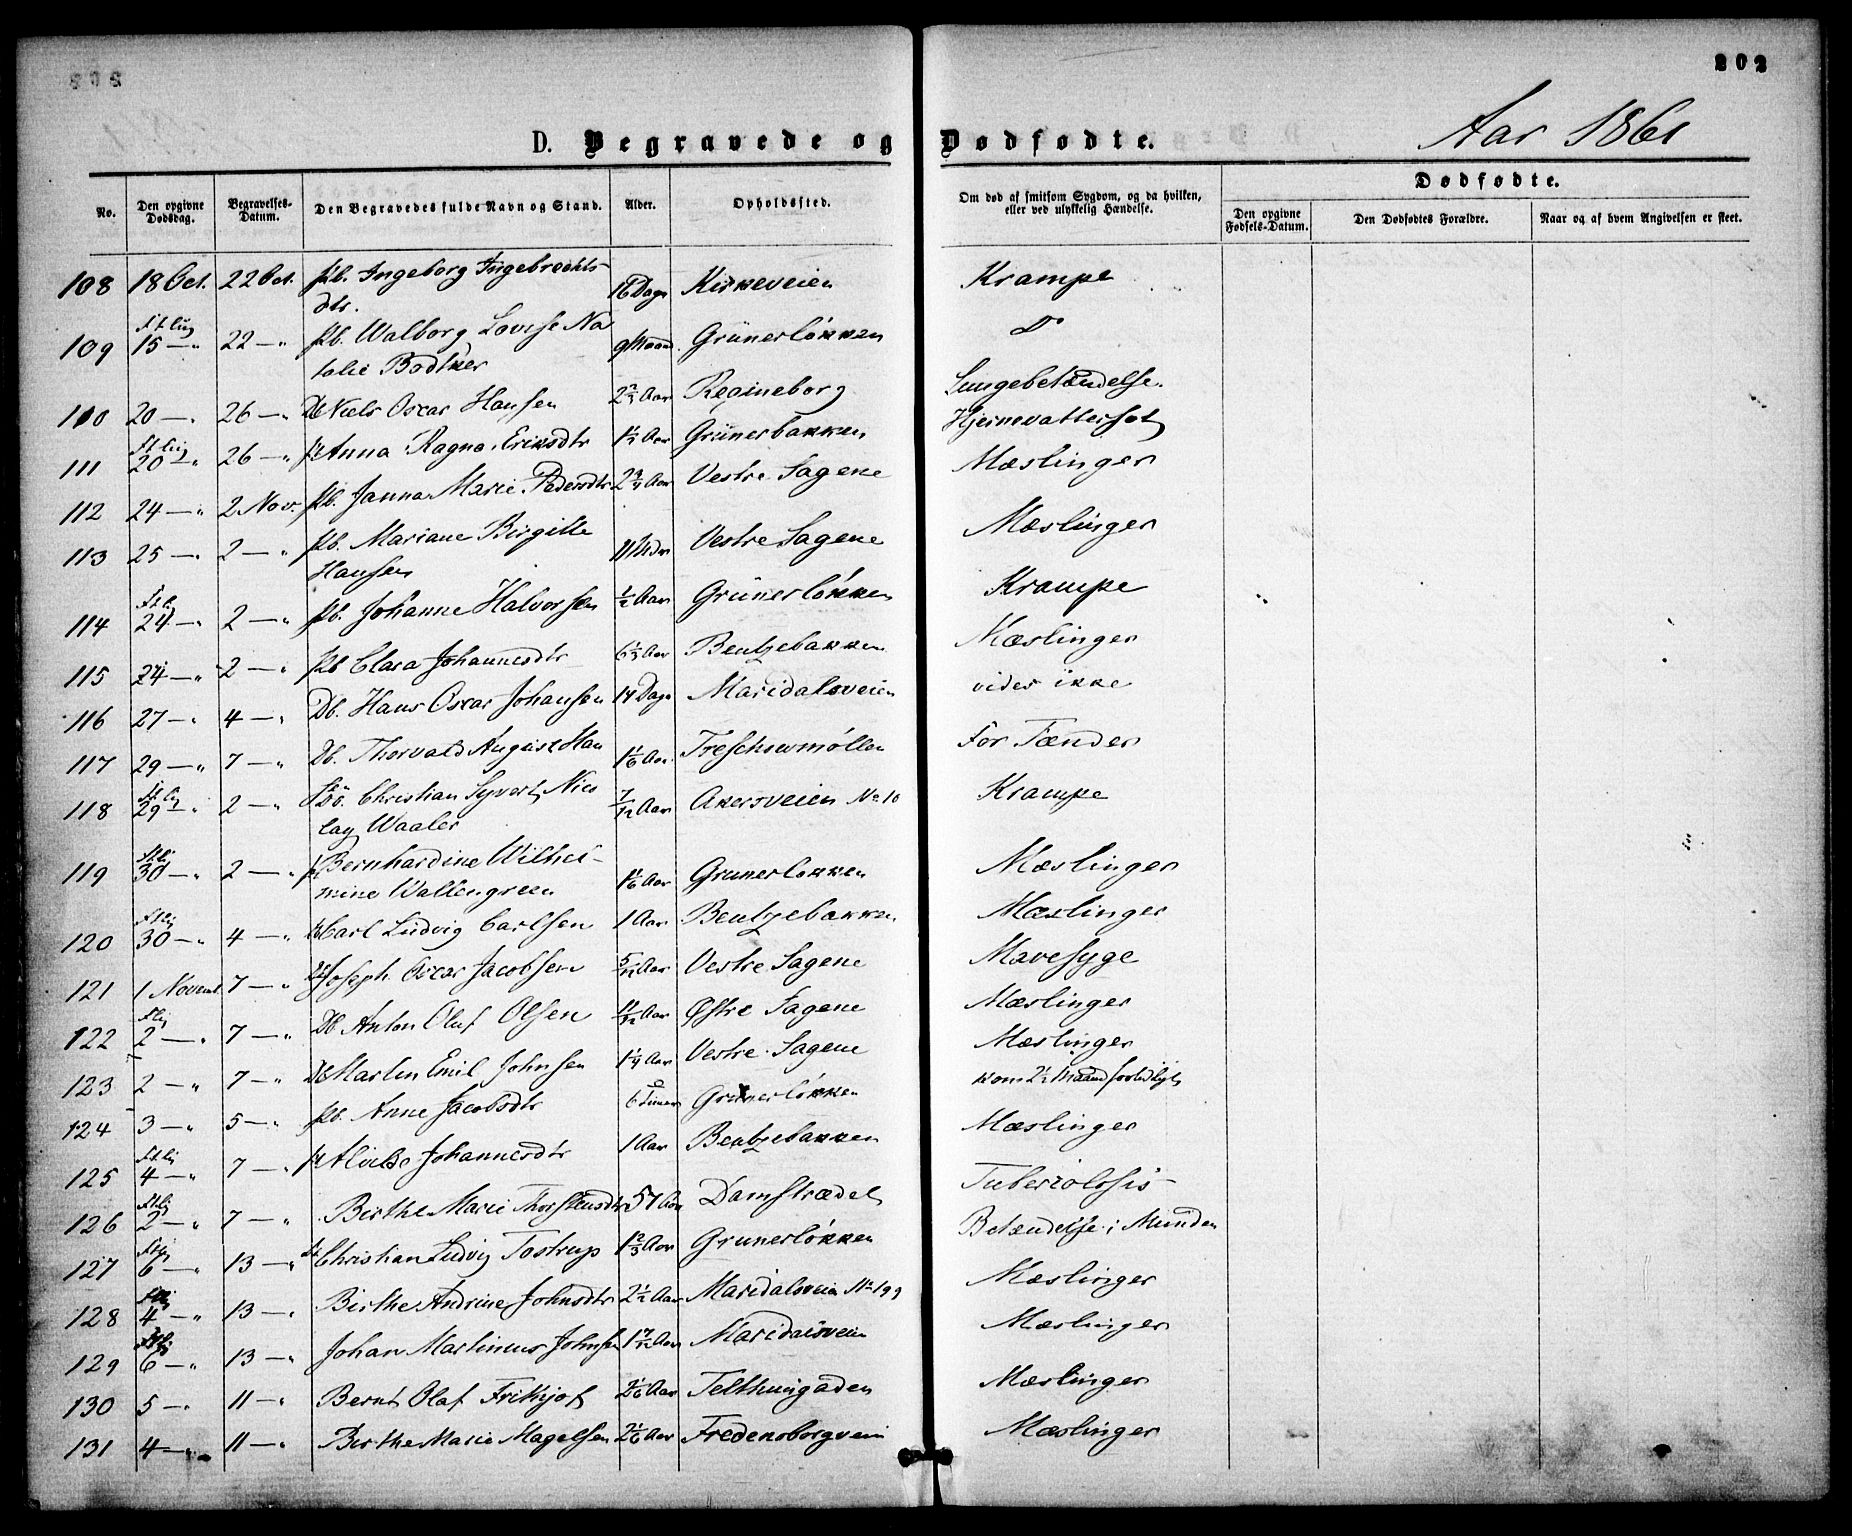 202
Aar 1861
D. Begravede og Dødfødte.
No. | Den opgivne Dødsdag. | Begravelses-Datum. | Den Begravedes fulde Navn og Stand. | Alder. | Opholdssted. | Om død af smitsom Sygdom, og da hvilken, eller ved ulykkelig Hændelse. | Dødfødte. | Den opgivne Fødsels-Datum. | Den Dødfødtes Forældre. | Naar og af hvem Angivelsen er skeet.
108 | 18 Oct. | 22 Oct. | Pb. Ingeborg Ingebrechts- | 16 Dage | Kirkeveien | Krampe
dtr.
109 | 15 — " | 22 — " | Pb. Walborg Lovise Na | 9 Maan. | Grünerløkken | Do
talie Bødtker
110 | 20 — " | 26 — " | Db Niels Oscar Hansen | Aar | Regineborg | Lungebetændelse.
111 | 20 — " | 26 — " | Anna Ragna Eriksdtr | Aar | Grünerbakken | Hjernevattersot
112 | 24 — " | 2 Nov. | Pb. Janna Marie Pedersdtr | 2 3/4 Aar | Vestre Sagene | Mæslinger
113 | 25 — " | 2 — " | Pb. Mariane Birgitte | 11 | Vestre Sagene | Mæslinger
Hansen
114 | 24 — " | 2 — " | Pb. Johanne Halvorsen | 1/2 Aar | Grünerløkken | Krampe
115 | 24 — " | 2 — " | Pb Clara Johannesdtr | 6 1/3 Aar | Bentzebakken | Mæslinger
116 | 27 — " | 4 — " | Db. Hans Oscar Johansen | 14 Dage | Maridalsveien | vides ikke
117 | 29 — " | 7 — " | Db. Thorvald August Han | 1 1/6 Aar. | Treschowmøllen | For Tænder
118 | 29 — " | 2 — " | Christian Syvert Nico | 7/12 Aar | Akersveien No 10 | Krampe
lay Waaler
119 | 30 — " | 2 — " | Bernhardine Wilhel- | 1 1/6 Aar | Grunerløkken | Mæslinger
mine Wallengreen
120 | 30 — " | 4 — " | Carl Ludvig Carlsen | 1 Aar | Bentzebakken | Mæslinger
121 | 1 Novemb | 7 — " | Joseph Oscar Jacobsen | 5/12 Aar | Vestre Sagene | Mavesyge
122 | 2 — " | 7 — " | Db Anton Olaf Olsen | 11/12 Aar | Østre Sagene | Mæslinger
123 | 2 — " | 7 — " | Db Martin Emil Johnsen | 1 1/4 Aar | Vestre Sagene | Mæslinger
124 | 3 — " | 5 — " | Pb. Anne Jacobsdtr | 6 Timer | Grünerløkken | kom 2 1/2 Maaned fortidligt
125 | 4 — " | 7 — " | Johannesdtr | 1 Aar | Bentzebakken | Mæslinger
126 | 2 — " | 7 — " | Birthe Marie Thorstensdtr | 57 Aar | Damstrædet | Tuberculosis
127 | 6 — " | 13 — " | Christian Ludvig Tostrup | 1 2/3 Aar | Grunerløkken | Betændelse i Munden
128 | 4 — " | 13 — " | Birthe Andrine Johnsdtr | 2 1/2 Aar | Maridalsveien No 199 | Mæslinger
129 | 6 — " | 13 — " | Johan Martinius Johnsen | 1 7/12 Aar | Maridalsveien | Mæslinger
130 | 5 — " | 11 — " | Bernt Olaf Frithjof | 2 1/6 Aar | Telthusgaden | Mæslinger
131 | 4 — " | 11 — " | Birthe Marie Magelsen | 2 1/6 Aar | Fredensborgvein | Mæslinger